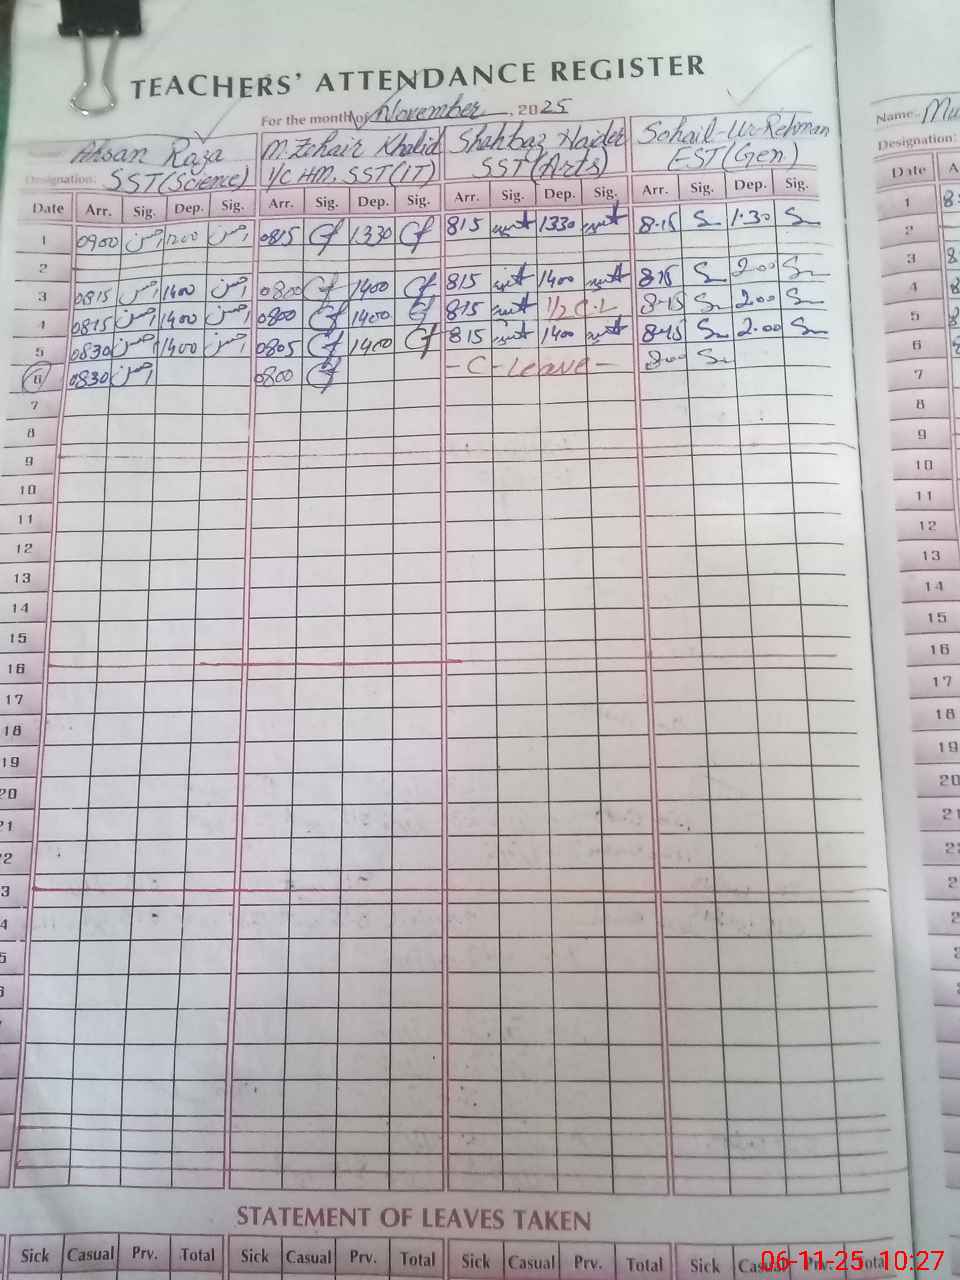 TEACHERS' ATTENDANCE REGISTER
For the month of November, 2025
Ahsan Raza M. Zohair Khalid Shahbaz Haider Sohail-Ur-Rehman Name:
Designation: SST(Science) I/C HM, SST(IT) SST(Arts) EST(Gen) Designation:
Date Arr. Sig. Dep. Sig. Arr. Sig. Dep. Sig. Arr. Sig. Dep. Sig. Arr. Sig. Dep. Sig. Date
1 0900 احسن 1200 احسن 0815 1330 815 1330 8.15 1.30 1
2 2
3 0815 احسن 1400 احسن 0800 1400 815 1400 8.15 2.00 3
4 0815 احسن 1400 احسن 0800 1400 815 1/2 C.L 8.15 2.00 4
5 0830 احسن 1400 احسن 0805 1400 815 1400 8.15 2.00 5
6 0830 احسن 0800 - C - Leave - 8.00 6
7 7
8 8
9 9
10 10
11 11
12 12
13 13
14 14
15 15
16 16
17 17
18 18
19 19
20 20
21 21
22
STATEMENT OF LEAVES TAKEN
Sick Casual Prv. Total Sick Casual Prv. Total Sick Casual Prv. Total Sick Casual Prv. Total
06-11-25 10:27